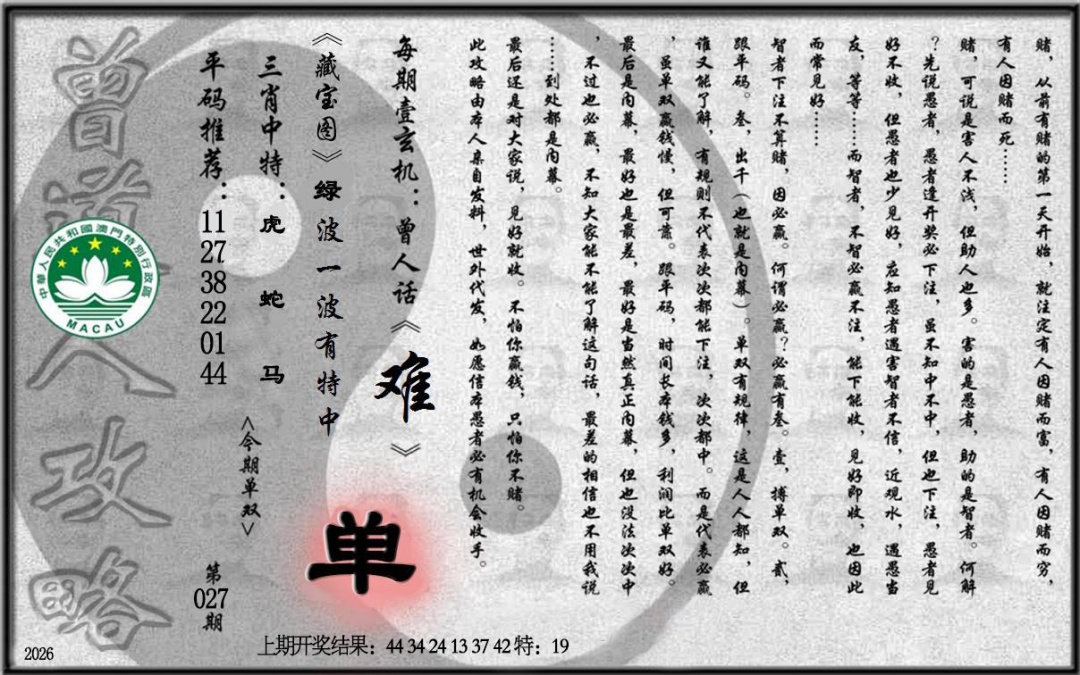 赌，从前有赌的第一天开始，就注定有人因赌而富，有人因赌而穷，
有人因赌而死……
赌，可说是害人不浅，但助人也多。害的是愚者，助的是智者。何解
？先说愚者，愚者逢开奖必下注，虽不知中不中，但也下注，愚者见
好不收，但愚者也少见好，应知愚者遇害智者不信，近观水，遇愚当
友，等等……而智者，不智必赢不注，能下能收，见好即收，也因此
而常见好……
智者下注不算赌，因必赢。何谓必赢？必赢有叁。壹，搏单双。贰，
跟单码。叁，出千（也就是内幕）。单双有规律，这是人人都知，但
谁又能了解，有规则不代表次次都能下注，次次都中。而是代表必赢
，虽单双赢钱慢，但可靠。跟单码，时间长本钱多，利润比单双好。
最后是内幕，最好也是最差，最好是当然真正内幕，但也没法次次中
，不过也必赢，不知大家能不能了解这句话，最差的相信也不用我说
……到处都是内幕。
最后还是对大家说，见好就收。不怕你赢钱，只怕你不赌。
此攻略由本人亲自发料，世外代发，如愿信本愚者必有机会收手。
每期壹玄机：曾人话《难》
《藏宝图》绿波一波有特中
单
三肖中特：虎 蛇 马
<今期单双>
平码推荐：11 27 38 22 01 44
第027期
曾道人攻略
中華人民共和國澳門特別行政區
MACAU
上期开奖结果：44 34 24 13 37 42 特：19
2026